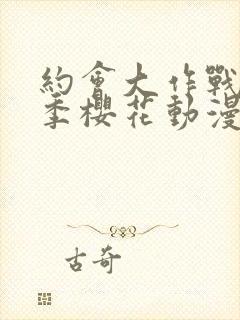 約會大作戰
季櫻花動漫
古奇